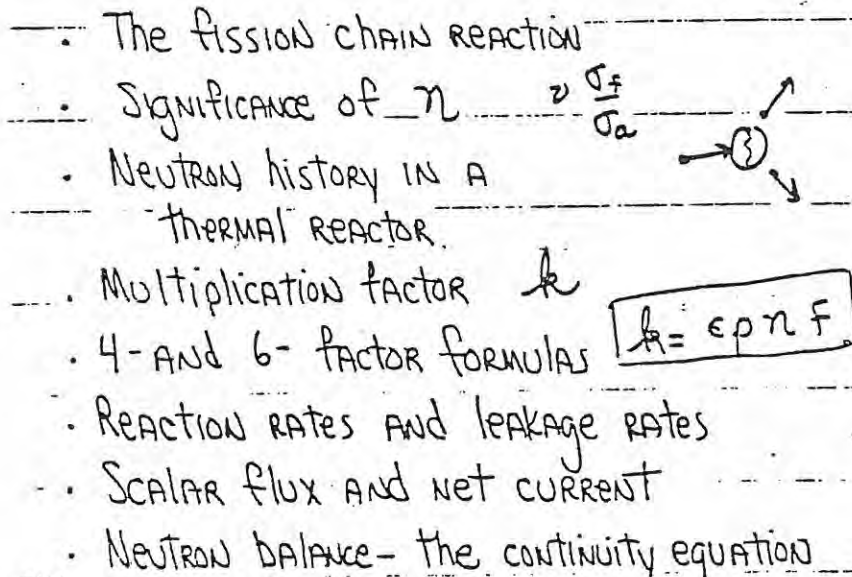 · The fission chain reaction
· Significance of η ν σf/σa
· Neutron history in a
thermal reactor.
· Multiplication factor k
· 4- and 6- factor formulas k = ϵ p η f
· Reaction rates and leakage rates
· Scalar flux and net current
· Neutron balance - the continuity equation